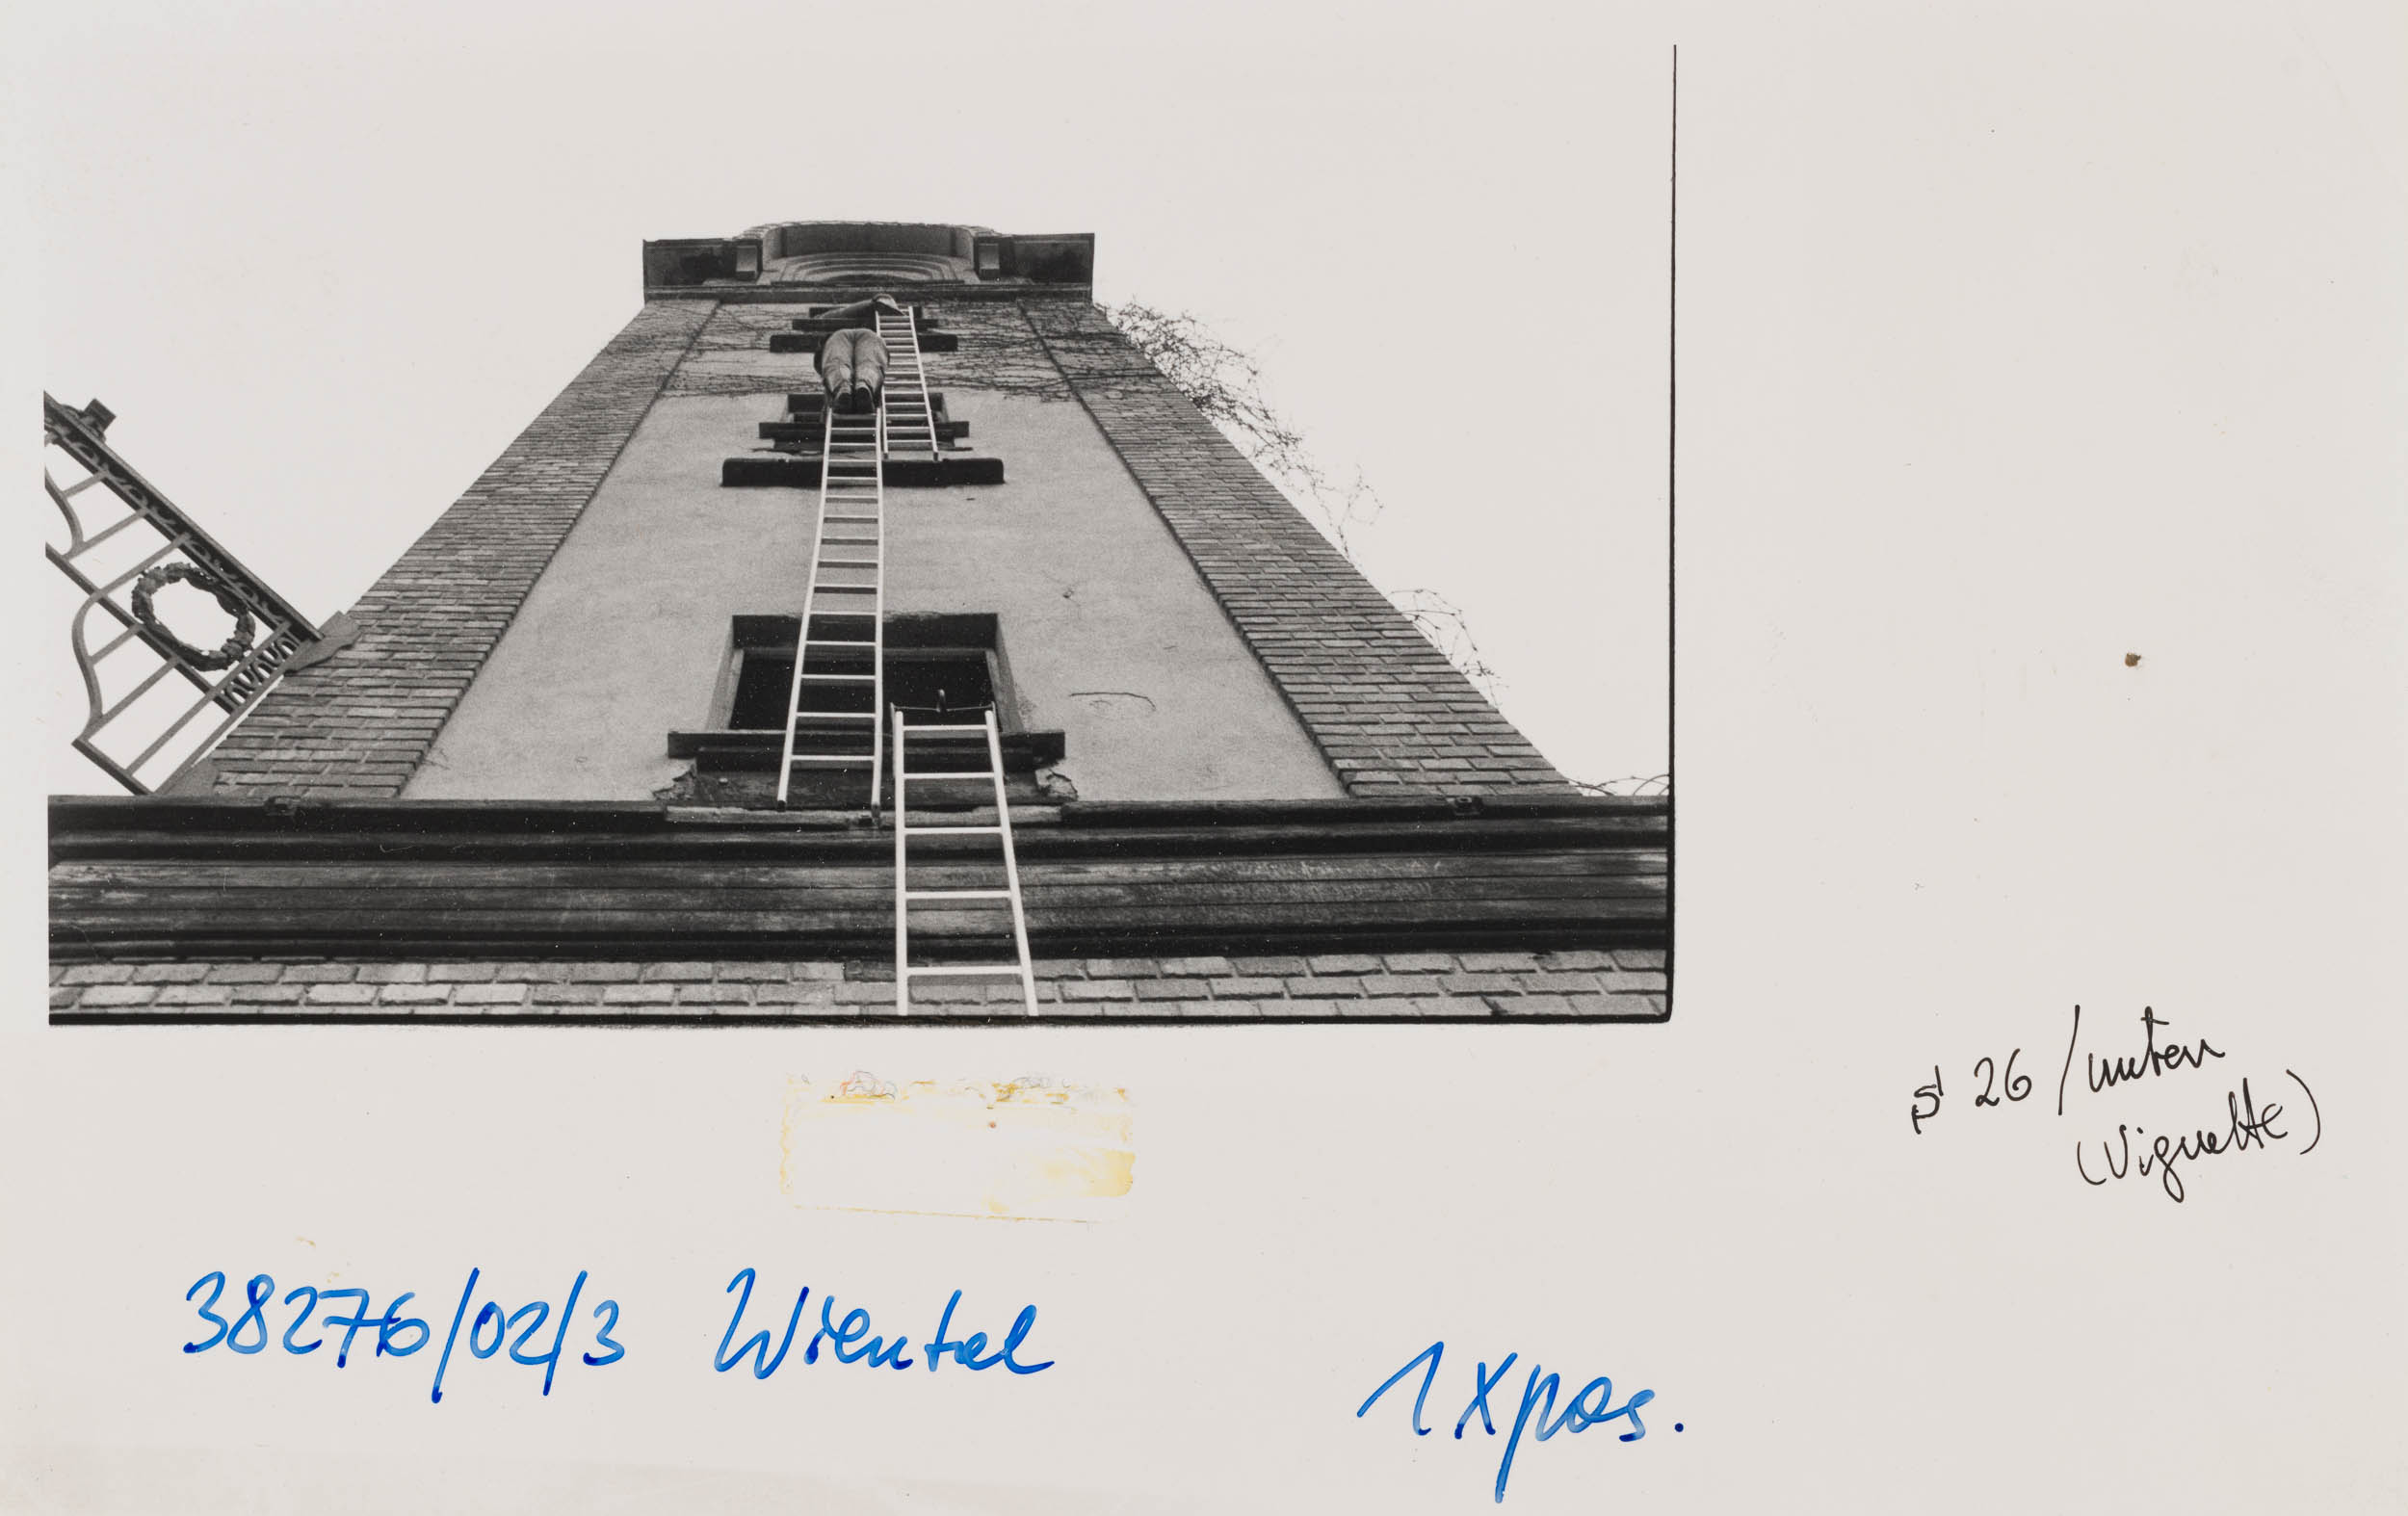 S 26 / unten
(Vignette)
38276/02/3 Wiental
1 x pos.